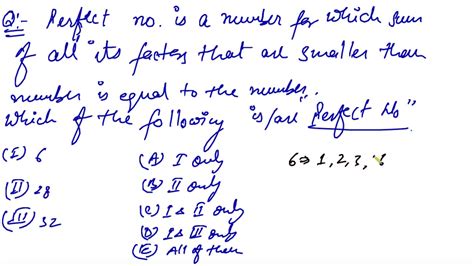 Q:- Perfect no. is a number for which sum
of all its factors that are smaller than
number is equal to the number.
Which of the following is/are "Perfect No"
(I) 6 (A) I only 6 ⇒ 1, 2, 3,
(II) 28 (B) II only
(III) 32 (C) I & II only
(D) I & III only
(E) All of them